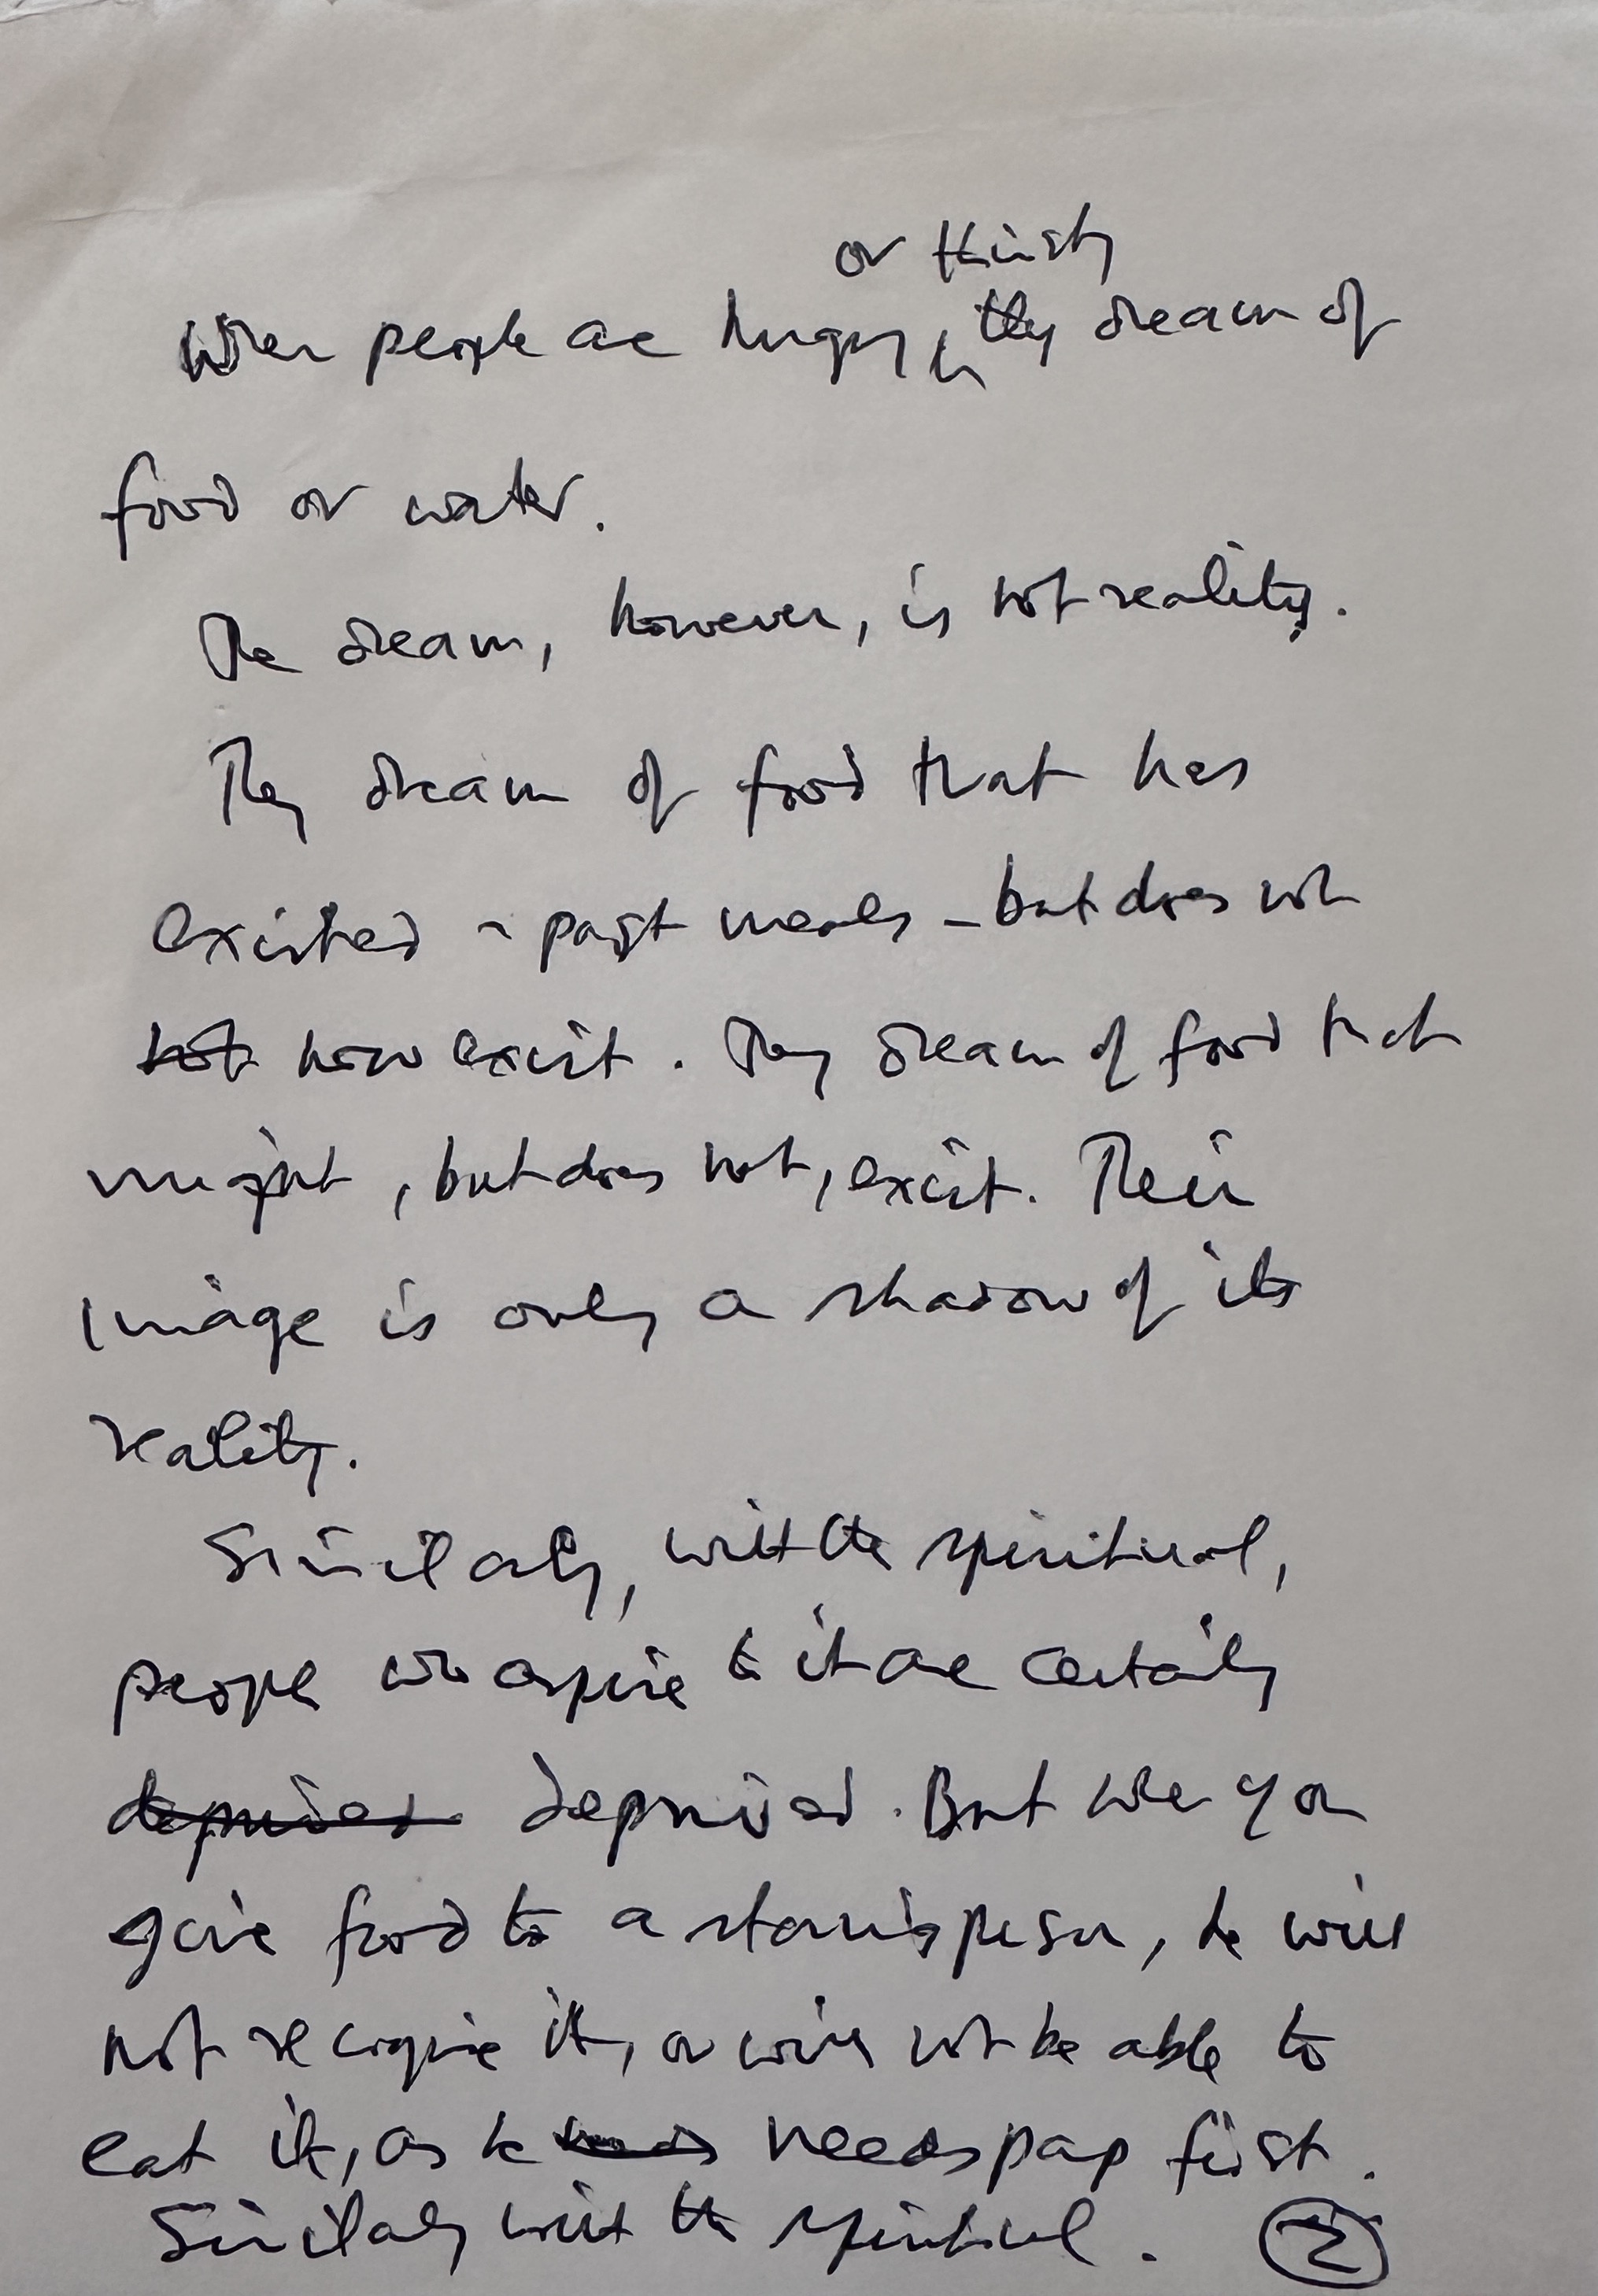 or thirsty
When people are hungry, they dream of
food or water.
The dream, however, is not reality.
They dream of food that has
existed - past meals - but does not
not now exist. They dream of food that
might, but does not, exist. Their
image is only a shadow of its
reality.
Similarly, with the spiritual,
people who aspire to it are certainly
deprived deprived. But when you
give food to a starving person, he will
not recognise it, or will not be able to
eat it, as he needs needs pap first.
Similarly with the spiritual. 2